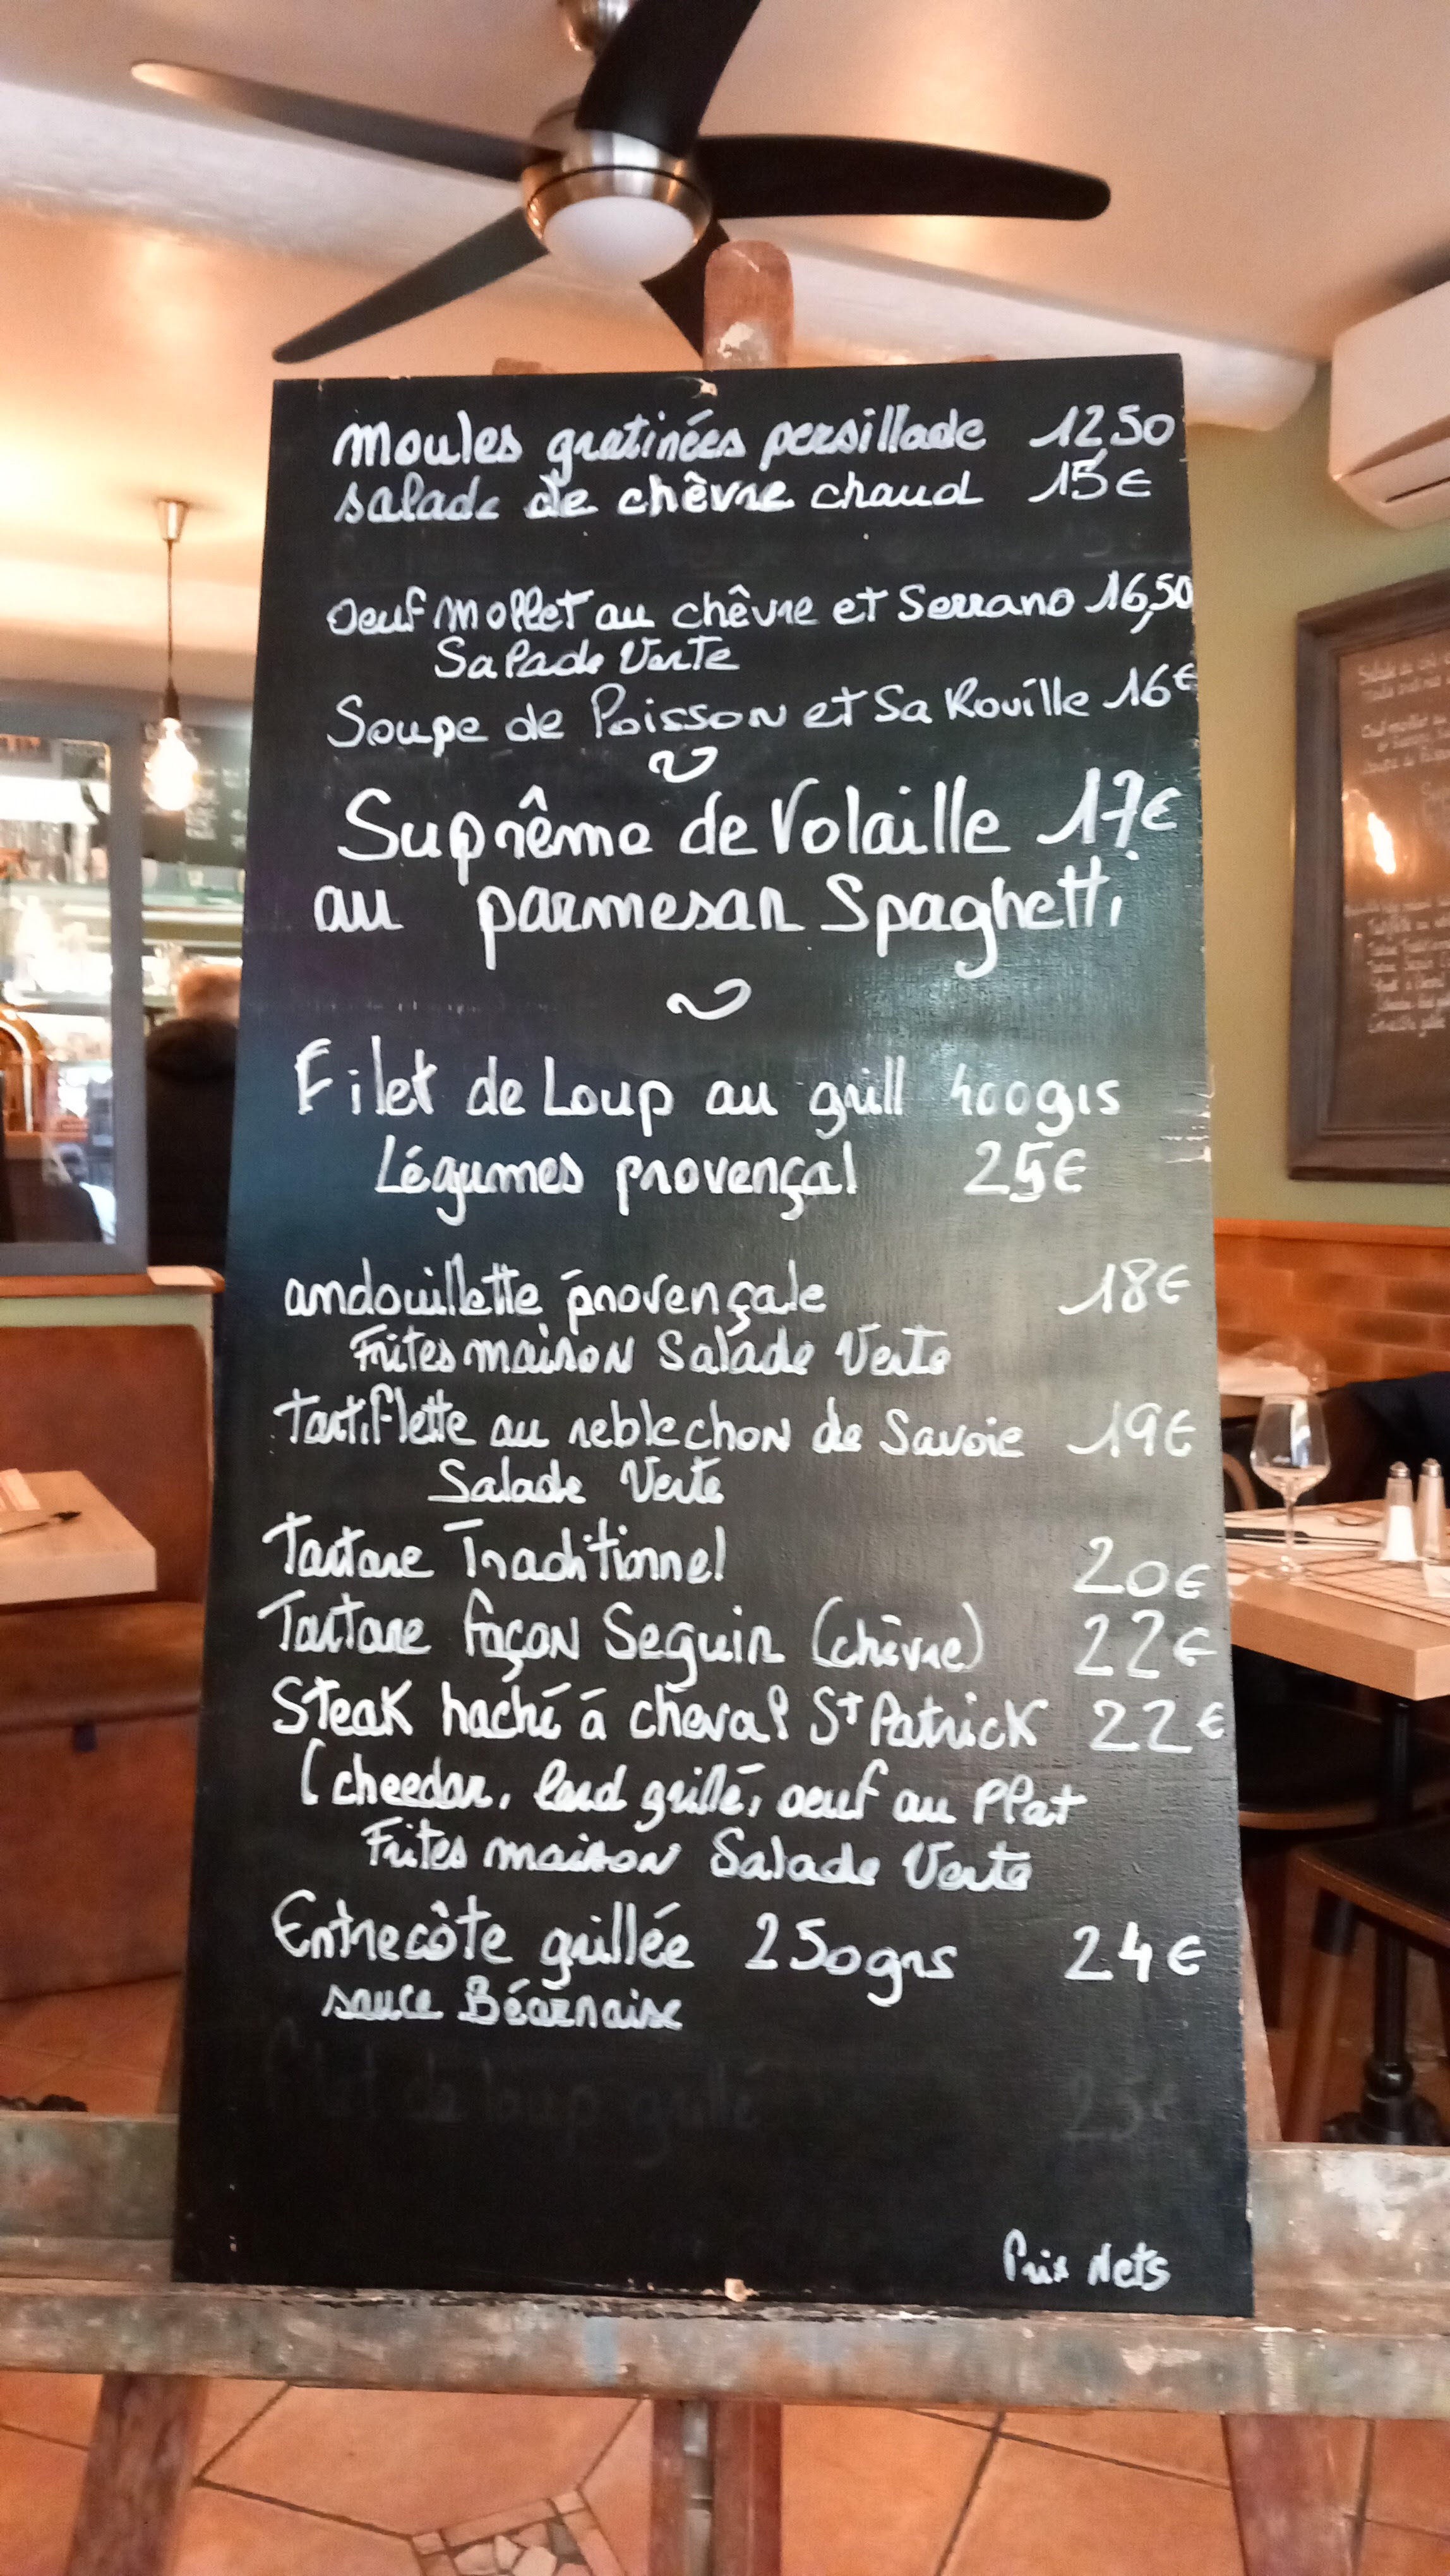 moules gratinées persillade 12,50
salade de chêvre chaud 15€
Oeuf Mollet au chêvre et Serrano 16,50
Salade Verte
Soupe de Poisson et Sa Rouille 16€
Suprême de Volaille 17€
au parmesan Spaghetti
Filet de Loup au grill 400grs
Légumes provençal 25€
andouillette provençale 18€
Frites maison Salade Verte
Tartiflette au reblechon de Savoie 19€
Salade Verte
Tartare Traditionnel 20€
Tartare façon Seguin (chèvre) 22€
Steak haché à cheval St Patrick 22€
(cheedar, lard grillé, oeuf au Plat
Frites maison Salade Verte
Entrecôte grillée 250grs 24€
sauce Béarnaise
Filet de loup grillé 25€
Prix Nets